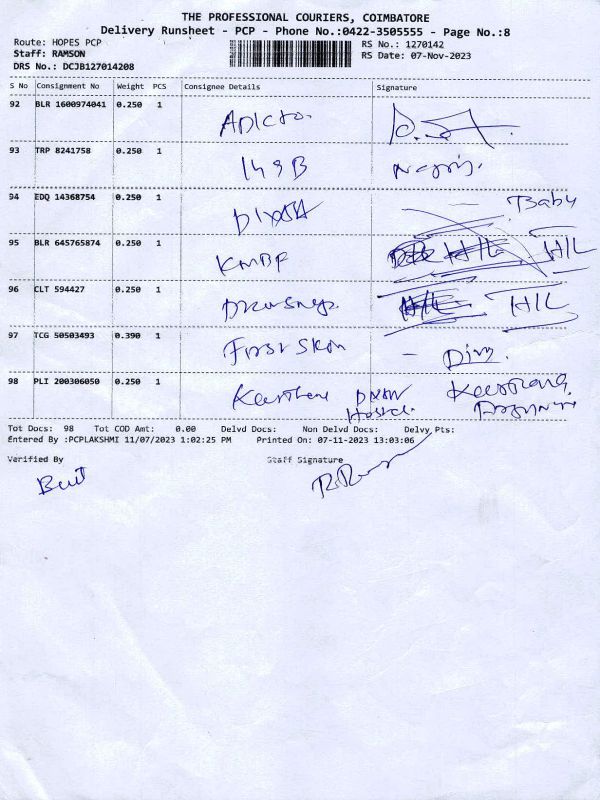 THE PROFESSIONAL COURIERS, COIMBATORE
Delivery Runsheet - PCP - Phone No.:0422-3505555 - Page No.:8
Route: HOPES PCP
RS No.: 1270142
Staff: RAMSON
RS Date: 07-Nov-2023
DRS No.: DCJB127014208
S No Consignment No Weight PCS Consignee Details Signature
92 BLR 1600974041 0.250 1
93 TRP 8241758 0.250 1 149B
94 EDQ 14368754 0.250 1 Baby
95 BLR 645765874 0.250 1 KMBF H/L H/L
96 CLT 594427 0.250 1 H/L H/L
97 TCG 50503493 0.390 1 First Skon
98 PLI 200306050 0.250 1
Tot Docs: 98 Tot COD Amt: 0.00 Delvd Docs: Non Delvd Docs: Delvy Pts:
Entered By :PCPLAKSHMI 11/07/2023 1:02:25 PM Printed On: 07-11-2023 13:03:06
Verified By Staff Signature